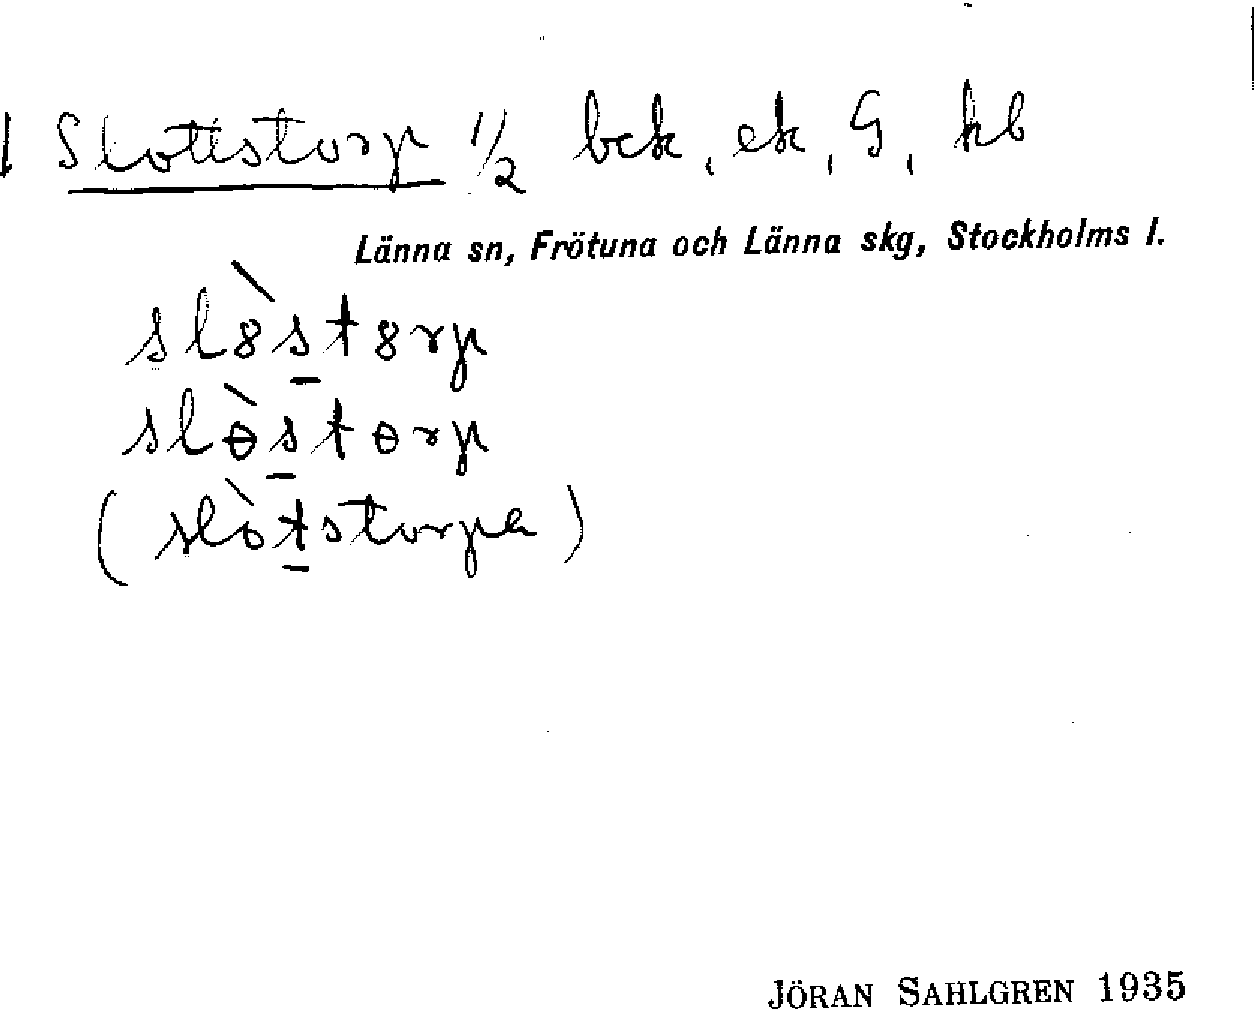 Slottstorp 1/2 bck, ek, G, kb
Länna sn, Frötuna och Länna skg, Stockholms l.
slò̀8st8rp
slɵ̀stɵrp
(slòtstorpa)
JÖRAN SAHLGREN 1935